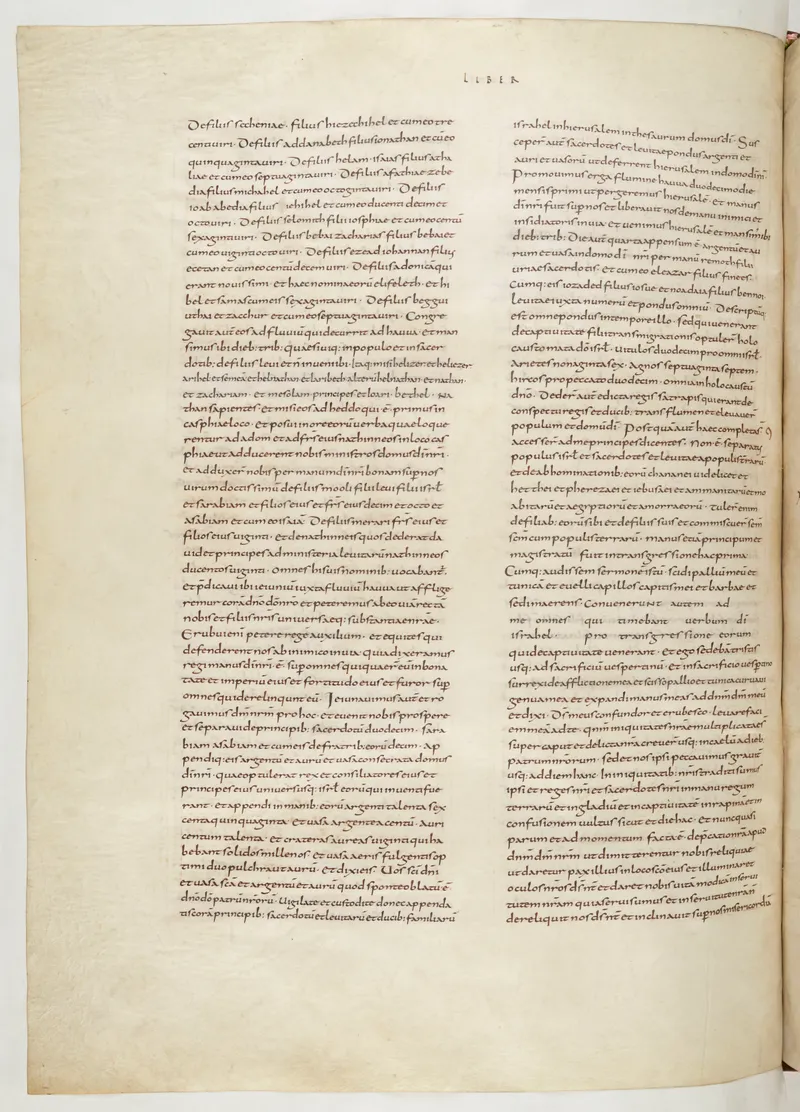 LIBER
De filiis secheniae · filius hiezechihel et cum eo tre
centi uiri · De filiis addan abeth filius ionathan et cū eo
quinquaginta uiri · De filiis helam · isaias filius atha
liae et cum eo septuaginta uiri · De filiis saphatiae zebe
dia filius michahel et cum eo octoginta uiri · De filiis
ioab abedia filius iehihel et cum eo ducenti decim et
octo uiri · De filiis selomith filius iosphiae et cum eo centū
sexaginta uiri · De filiis bebai zacharias filius bebai et
cum eo uiginti octo uiri · De filiis ezead iohannan filius
ecetan et cum eo centū decem uiri · De filiis adonicā qui
erant nouissimi · et haec nomina eorū elifeleth · et hi
hel et samas cum eis sexaginta uiri · De filiis beggui
uthai et zacchur et cum eo septuaginta uiri · Congre
gaui aut̄ eos ad fluuiū qui decurrit ad hauua · et man
simus ibi dieb: trib: quaesiuiq: in populo et in sacer
dotib: de filiis leui et ñ inueni ibi · Itaq: misi heliezer et heliezer
arihel et semeā et helnathan et baribeth alterū helnathan · et nathan ·
et zachariam · et mesolam · principes et ioari · bethel · NA
than sapientes · et misi eos ad heddo qui · ē · primus in
casphiae loco · et posui in ore eorū uerba quae loque
rentur ad adom et ad frs eius nathinneos in loco cas
phiae ut adducerent nobis ministros domus dī nr̄i ·
et adduxer̄ nobis per manum dī nr̄i bonam sup nos
uirum doctissimū de filiis mooli filii leui filii isrl̄
et sarabiam et filios eius et frs eius decim et octo et
asabiam et cum eo isaiā · De filiis merari frs eius et
filios eius uiginti · et de nathinneis quos dederat da
uid et principes ad ministeria leuitarū nathinneos
ducentos uiginti · omnes hi suis nominib: uocabant̄ ·
et p̄dicaui ibi ieiuniū iuxta fluuiū hauua ut afflige
remur corā dn̄o dō nr̄o et peteremus ab eo uiā rectā
nobis et filiis nr̄is uniuersaeq: substantiae nr̄ae ·
Erubui eni petere regē auxilium · et equites qui
defenderent nos ab inimico in uia · quia dixeramus
regi manus dī nr̄i · ē · sup omnes qui quaer̄ eū in bona
tate et imperiū eius et fortitudo eius et furor sup
omnes qui derelinqunt eū · Ieiunauimus aut̄ et ro
gauimus dm̄ nr̄m pro hoc · et euenit nobis prospere ·
et separaui de principib: sacerdotū duodecim · sara
biam asabiam et cum eis de fratrib: eorū decim · Ap
pendiq: eis argentū et aurū et uasa consecrata domus
dī nr̄i · quae optulerat rex et consiliatores eius et
principes eius uniuersusq: isrl̄ eorū qui inuenti fue
rant · et appendi in manib: eorū argenti talenta sex
centa quinquaginta · et uasa argentea centū · Auri
centum talenta · et crateras aureas uiginti quae ha
bebant solidos millenos · et uasa aeris fulgentis op
timi duo pulchra ut aurū · et dixi eis · Uos sc̄i dn̄i
et uasa sc̄a et argentū et aurū quod sponte oblatū · ē ·
dn̄o dō patrū nrorū · Uigilate et custodite donec appenda
tis corā principib: sacerdotū et leuitarū et ducib: familiarū
israhel in hierusalem in thesaurum domus dī · Sus
ceper̄ aut̄ sacerdotes et leuitae pondus argenti et
auri et uasorū ut deferrent hierusalem in domū dī nr̄i
Promouimus ergo a flumine hauua duodecimo die
mensis primi ut pergeremus hierusalē · et manus
dī nr̄i fuit sup nos et liberauit nos de manu inimici et
insidiatoris in uia · et uenimus hierusalē et mansim̄ ibi
dieb: trib: Die aut̄ quarta appensum · ē · argentū et au
rum et uasa in domo dī nr̄i per manū remoth filii
uriae sacerdotis · et cum eo eleazar filius finees ·
Cumq: eis iozaded filius iosue et noadaia filius bennoi
leuitae iuxta numerū et pondus omniū · Descriptūq:
est omne pondus in tempore illo · sed qui uenerant
de captiuitate filii transmigrationis optuler̄ holo
causto māta dō isrl̄ · uitulos duodecim pro omni isrl̄
Arietes nonaginta sex · Agnos septuaginta septem ·
hircos pro peccato duodecim · omnia in holocaustū
dn̄o · Deder̄ aut̄ edicta regis satrapis qui erant de
conspectu regis et ducib: trans flumen et eleuauer̄
populum et domū dī · Postquā aut̄ haec completa s̄
accesser̄ ad me principes dicentes · Non · ē · separatus
populus isrl̄ et sacerdotes et leuitae a populis terrarū
et de abhominationib: eorū chananei uidelicet et
hetthei et pherezaei et iebusaei et ammanitarū et mo
abitarū et aegyptiorū et amorraeorū · tuler̄ enim
de filiab: eorū sibi et de filiis suis et commiscuer̄ sem̄
sc̄m cum populis terrarū · manus etiā principum et
magistratū fuit in transgressione hac prima ·
Cumq: audissem sermonē istū · scidi palliū meū et
tunicā et euelli capillos capitis mei et barbae et
sedi maerens · Conuenerunt autem ad
me omnes qui timebant uerbum dī
israhel · pro transgressione eorum
qui de captiuitate uenerant · et ego sedebā tristis
usq: ad sacrificiū uespertinū · et in sacrificio uespertino
surrexi de afflictione mea et scisso pallio et tunica curuaui
genua mea et expandi manus meas ad dn̄m dm̄ meū
et dixi · Ds̄ meus confundor et erubesco · leuare faciē
em meā ad te · qnm̄ iniquitates nr̄ae multiplicatae s̄
super caput et delicta nr̄a creuer̄ usq: in caelū a dieb:
patrum nr̄orum · sed et nos ipsi peccauimus grauit̄
usq: ad diem hanc · In iniquitatib: nr̄is traditi sumus
ipsi et reges nr̄i et sacerdotes nr̄i in manu regum
terrarū et in gladiū et in captiuitatē in rapinā et in
confusionem uultus sicut et die hac · et nunc quasi
parum et ad momentum facta · ē · dep̄catio nr̄a apud
dn̄m dm̄ nr̄m ut dimitterentur nobis reliquiae
ut daretur paxillus in loco sc̄o eius et illuminaret
oculos nr̄os ds̄ nr̄ et daret nobis uitā modicā in serui
tutem nr̄am quia serui sumus et in seruitute nr̄a ñ
dereliquit nos ds̄ nr̄ et inclinauit sup nos misericordiā